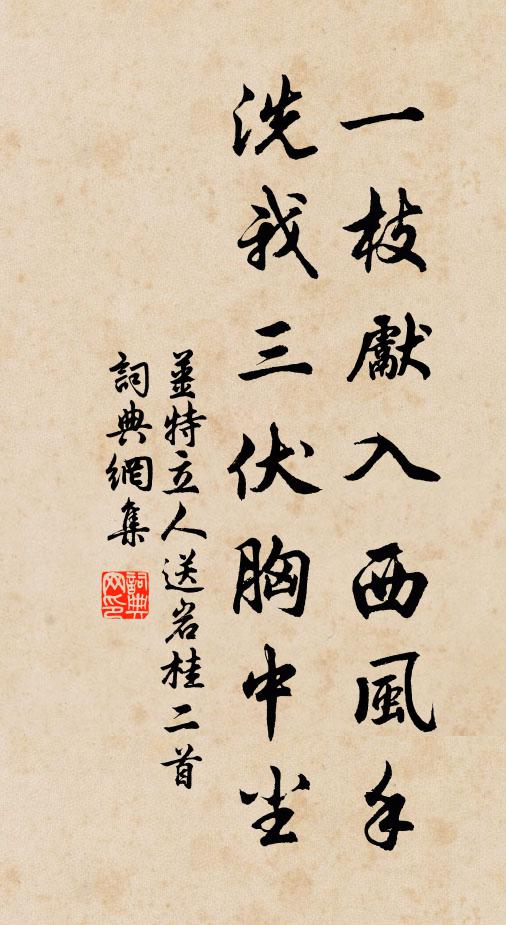 一枝獻入西風手
洗我三伏胸中尘
姜特立人送岩桂二首
詞典網集
詞典网印